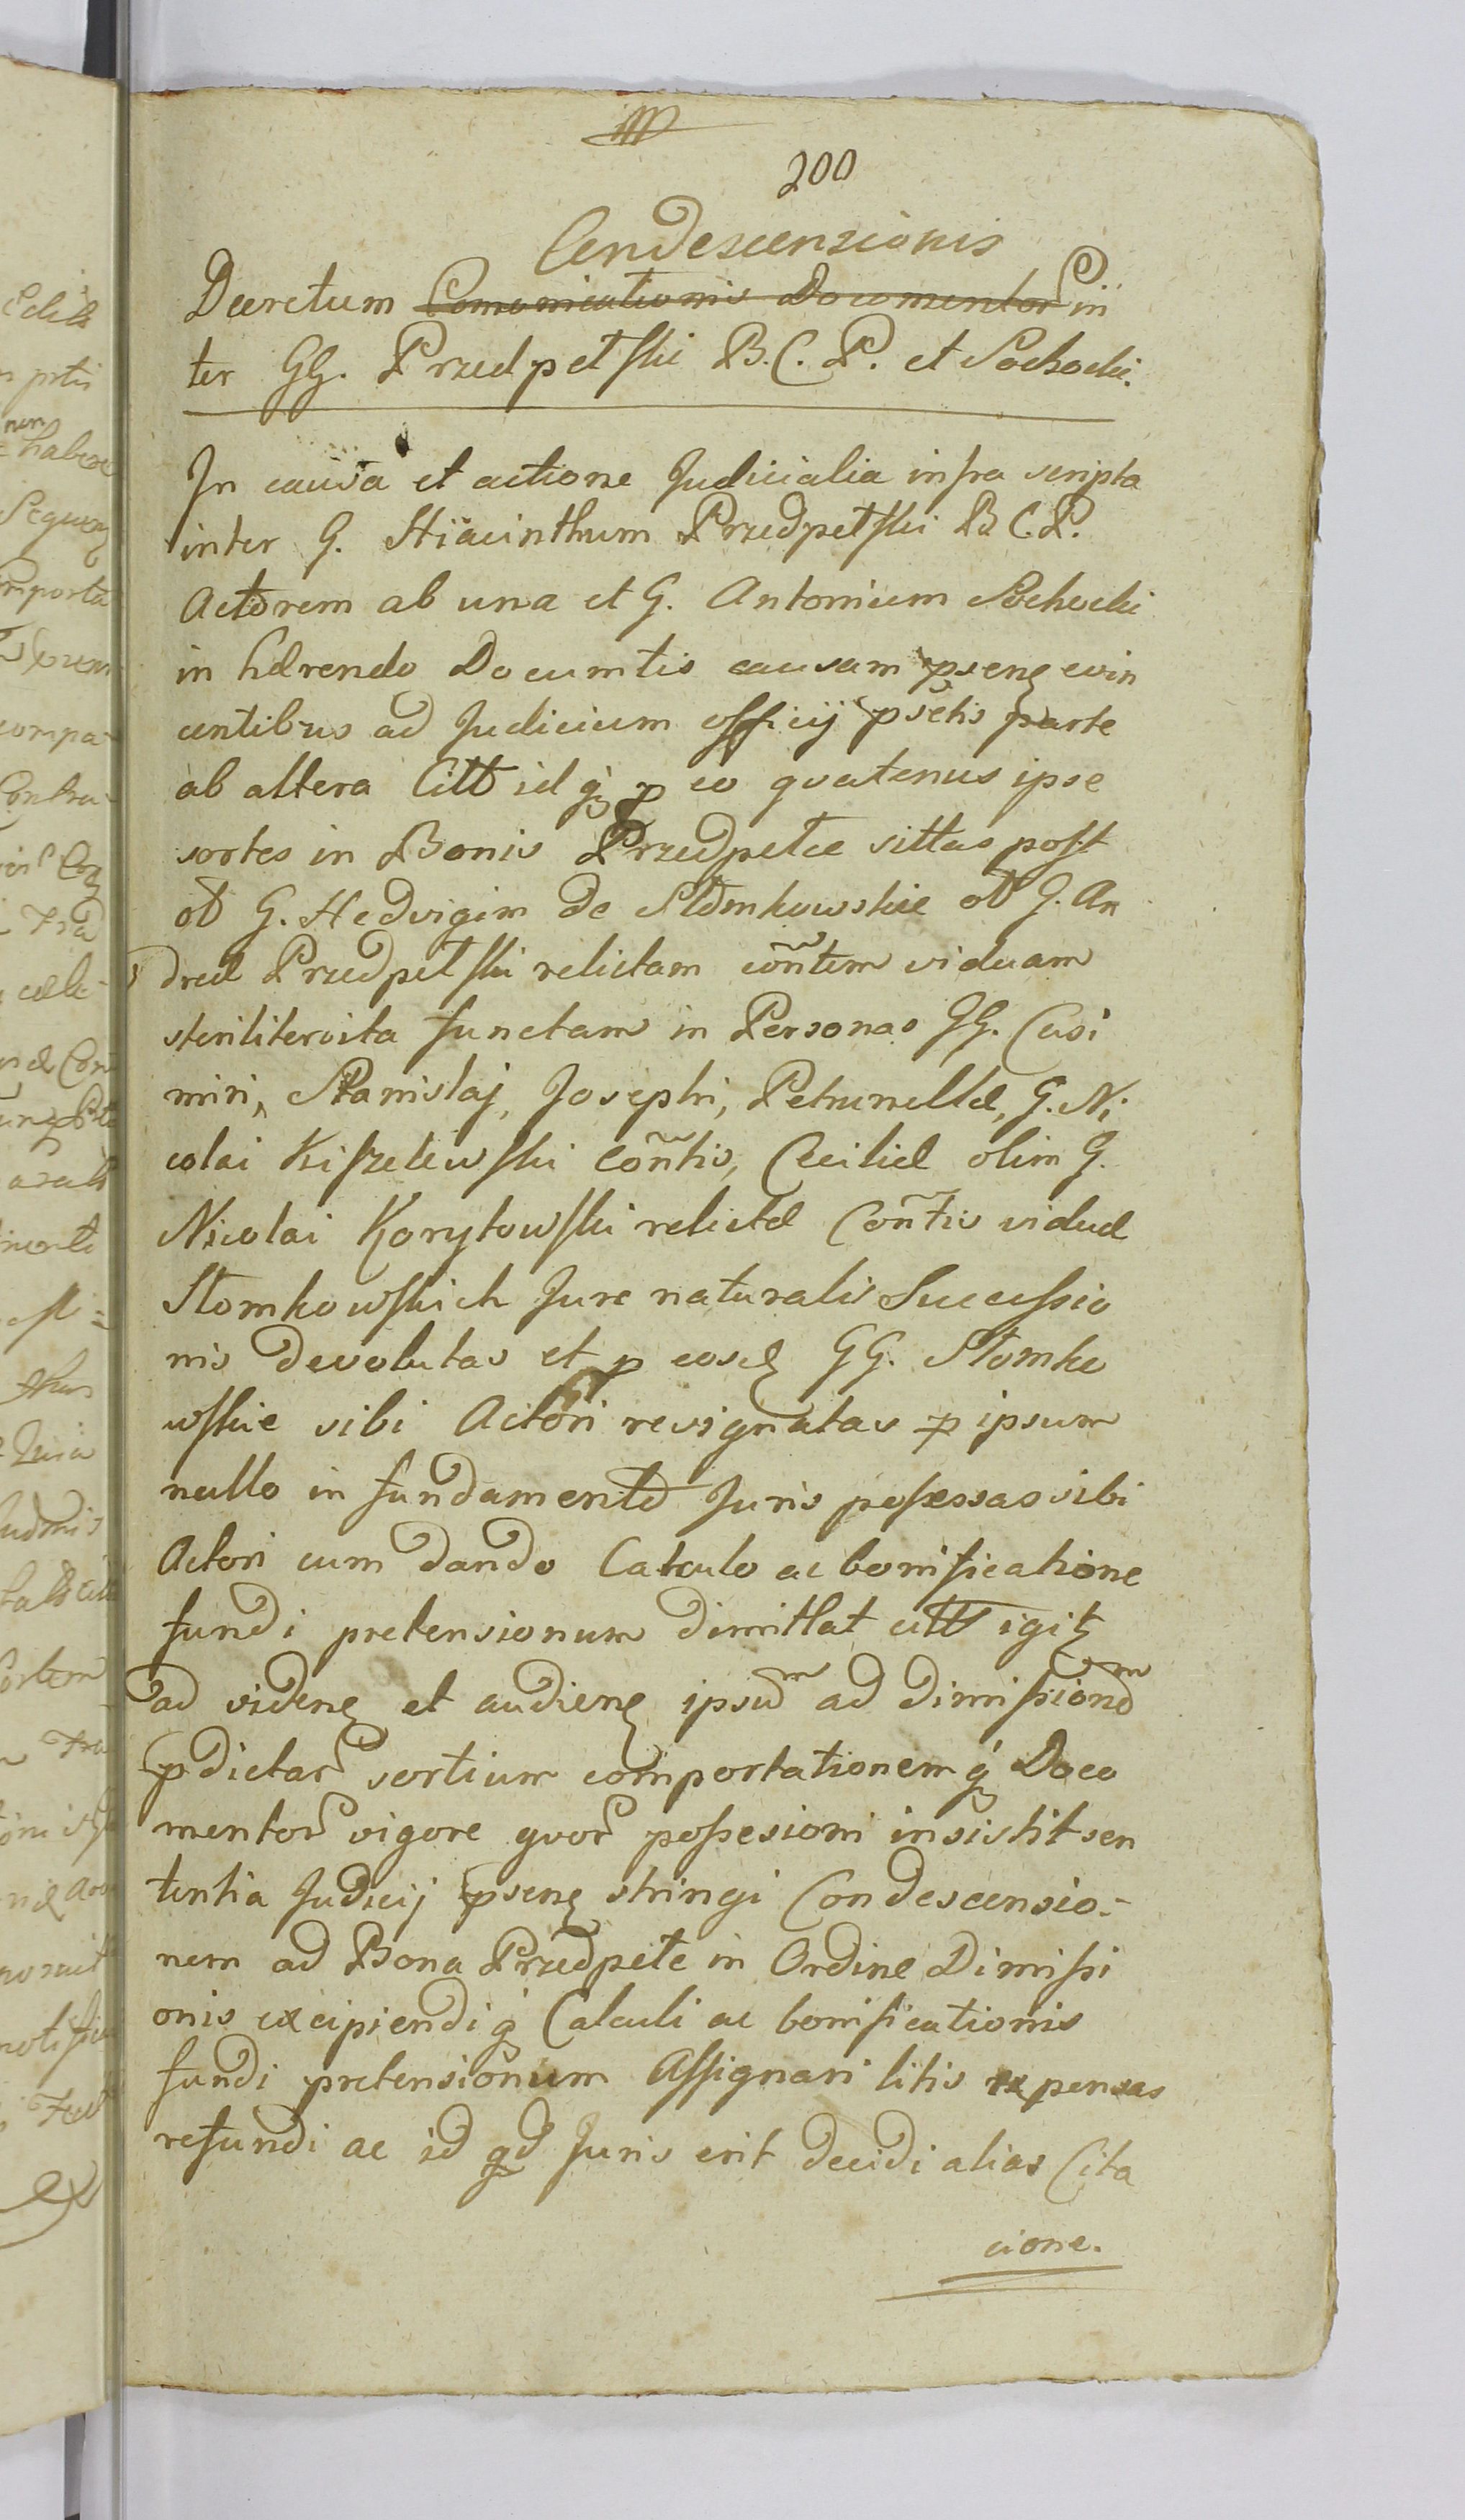 200
Condescensionis
Decretum Comunicationis Documentor in
ter GG. Przedpełski B.C.P. et Sochocki.
In causa et actione Judicialia infra scripta
inter G. Hiacinthum Przedpełski B C.P.
Actorem ab una et G. Antonium Sochocki
in hærendo Documtis causam psenz evin
centibus ad Judicium officij psetis parte
ab altera Citt id q p eo quatenus ipse
sortes in Bonis Przedpełce sittas post
ol G. Hedvigim de Słomkowskie ol G. An
dreæ Przedpełski relictam cõntem viduam
steriliter vita functam in Personas GG. Casi
miri, Stanislaj, Josephi, Petrunellæ, G. Ni
colai Kiszelewski cõntis, Ceciliæ olim G.
Nicolai Korytowski relictæ Cõntis viduæ
Słomkowskich Jure naturalis Successio
nis devolutas et p eosd GG. Słomko
wskie sibi Actori resignatas p ipsum
nullo in fundamento Juris possessas sibi
Actori cum dando Calculo ac bonificatione
fundi pretensionum dimittat citt igitz
ad videnz et audienz ipsum ad dimissionem
pdictar sortium comportationem q Docu
mentor vigore quor possesioni insistit sen
tentia Judicij psenz stringi Condescensio-
nem ad Bona Przedpełce in Ordine Dimissi
onis excipiendi q Calculi ac bonificationis
fundi pretensionum Assignari litis expensas
refundi ac id qd Juris erit decidi alias Cita
cione.